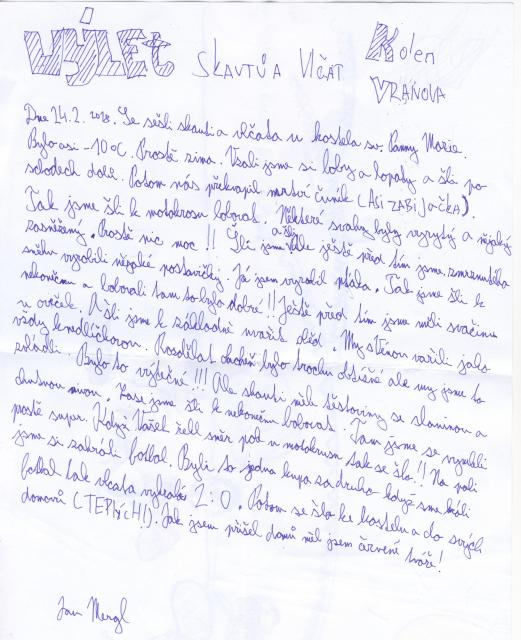 VÝLET SKAVTŮ A VLČAT Kolem VRANOVA
Dne 24.2. 2018. Se sešli skauti a vlčata u kostela sv. Panny Marie.
Bylo asi -10°C. Prostě zima. Vzali jsme si boby a lopaty a šli po
schodech dolů. Potom nás překvapil mrtvý čuník (ASI ZABIJAČKA).
Tak jsme šli k motokrosu bobovat. Některé svahy byly vyryty a nějaký
zasněžený. Prostě nic moc!! Šli jsme a šli dále ještě před tím jsme
sněhu vyrobili nějaké postavičky. Já jsem vyrobil ptáka. Tak jsme šli k
nekonečnu a bobovali tam to bylo dobré!! Ještě před tím jsme měli svačinu
u oveček. A šli jsme k základně uvařit oběd. My s Honou vařili jako
vždy knedlíčkovou. Rozdělat oheň bylo trochu obtížné ale my jsme to
zvládli. Bylo to výtečné!!! Ale skauti měli těstoviny se slaninou a
jsme šli k nekonečnu bobovat. Tam jsme se vyváleli
prostě supr. Když Vašek řekl směr pole u motokrosu tak se šlo!! Na poli
jsme si zahráli fotbal. Byli to jedna kupa za druhou když sme hráli
fotbal tak vlčata vyhrála 2:0. Potom se šlo ke kostelu a do svých
domovů (TEPLÝCH!). Jak jsem přišel domů měl jsem červené tváře!
Jan Mergl